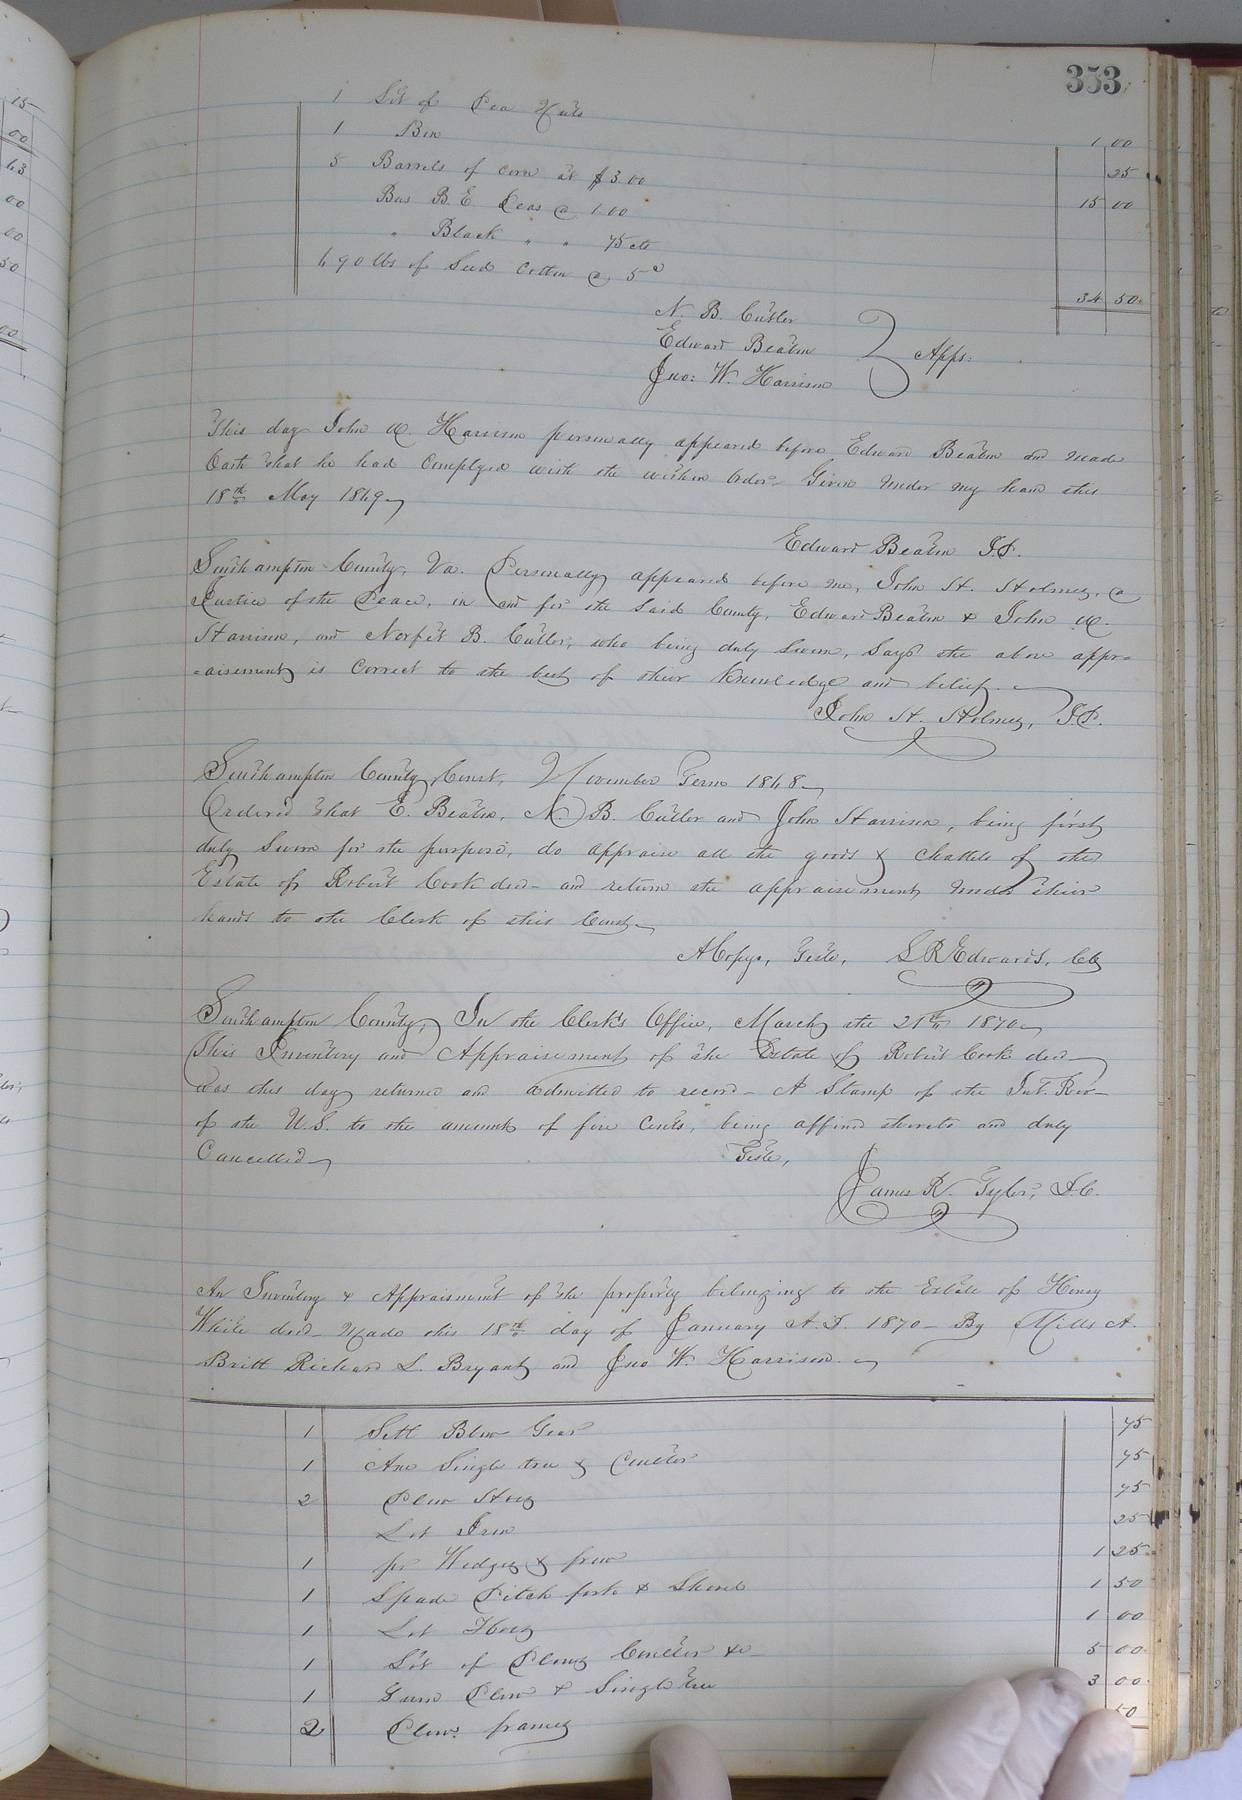 353
1 Lot of Pea Nuts 1 00
1 Box 25
5 Barrels of corn at $3.00 15 00
Bus B. E. Peas @ 1.00
" Black " " 75 cts
690 lbs of Seed Cotton @ 5c 34 50
N. B. Cutler
Edward Beaton
Jno: W. Harrison } Apps:
This day John W. Harrison personally appeared before Edward Beaton and made
Oath that he had Complyed with the within Order. Given under my hand this
18th May 1869
Edward Beaton J.P.
Southampton County, Va. Personally appeared before me, John H. Holmes, a
Justice of the Peace, in and for the said County, Edward Beaton & John W.
Harrison, and Norfet B. Cutler, who being duly Sworn, Says the above appr=
=aisement is correct to the best of their Knowledge and belief.
John H. Holmes, J.P.
Southampton County Court, November Term 1868
Ordered that E. Beaton, N B. Cutler and John Harrison, being first
duly Sworn for the purpose, do appraise all the goods & chattels of the
Estate of Robert Cook decd and return the appraisement under their
hands to the Clerk of this Court
A Copy, Teste, L R Edwards, Clk
Southampton County, In the Clerk's Office, March the 21st 1870
This Inventory and Appraisement of the Estate of Robert Cook decd
was this day returned and admitted to record - A Stamp of the Int. Rev
of the U.S. to the amount of five Cents, being affixed thereto and duly
Cancelled
Teste,
James R. Tyler, D.C.
An Inventory & Appraisment of the property belonging to the Estate of Henry
White decd made this 18th day of January A.D. 1870 - By Mills A.
Britt Richard L. Bryant and Jno W. Harrison
1 Sett Blow Gear 75
1 Axe Single tree & Coulter 75
2 Plow Hoes 75
Lot Iron 25
1 pr Wedges & frow 1 25
1 Spade Pitch fork & Shovel 1 50
1 Lot Hoes 1 00
1 Lot of Plows Coulter &c 5 00
1 Turn Plow & Single tree 3 00
2 Plow frames 50